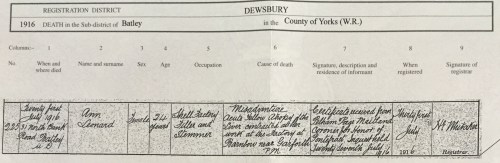 REGISTRATION DISTRICT DEWSBURY
1916 DEATH in the Sub-district of Batley in the County of Yorks (W.R.)
Columns:- 1 2 3 4 5 6 7 8 9
No. When and where died Name and surname Sex Age Occupation Cause of death Signature, description and residence of informant When registered Signature of registrar
Twenty first July 1916 31 North Bank Road Batley U.D.
Ann Leonard
Female
24 years
Shell Factory Filler and Stemmer
Misadventure Acute Yellow Atrophy of the Liver contracted after work at the Factory at Barnbow near Garforth P.M.
Certificate received from Pelham Page Maitland Coroner for Honor of Pontefract Inquest held Twenty seventh July 1916
Thirty first July 1916
Registrar